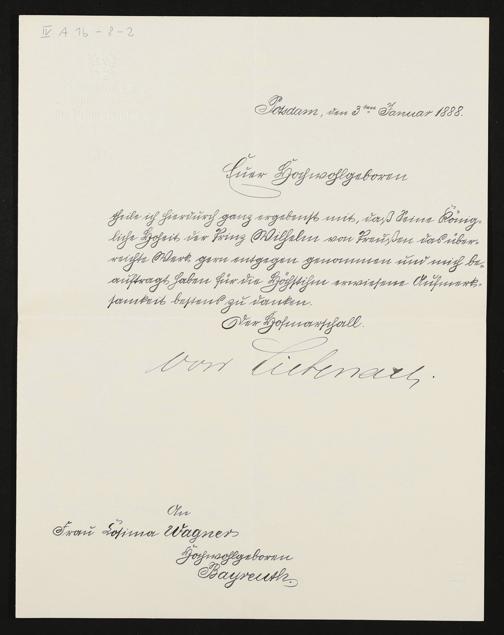 IV A 16 - 8 - 2
Potsdam, den 3ten Januar 1888.
Euer Hochwohlgeboren
theile ich hierdurch ganz ergebenst mit, daß Seine König-
liche Hoheit der Prinz Wilhelm von Preußen das über-
reichte Werk gern entgegen genommen und mich be-
auftragt haben für die Höchstihm erwiesene Aufmerk-
samkeit bestens zu danken.
Der Hofmarschall.
von Liebenau.
An
Frau Cosima Wagner
Hochwohlgeboren
Bayreuth.